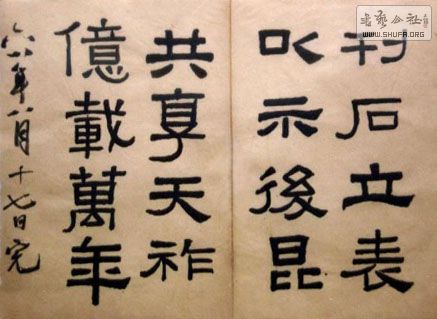 刊石立表
㕥示後昆
共享天祚
億載萬年
六八年八月十七日完
书艺公社
WWW.SHUFA.ORG